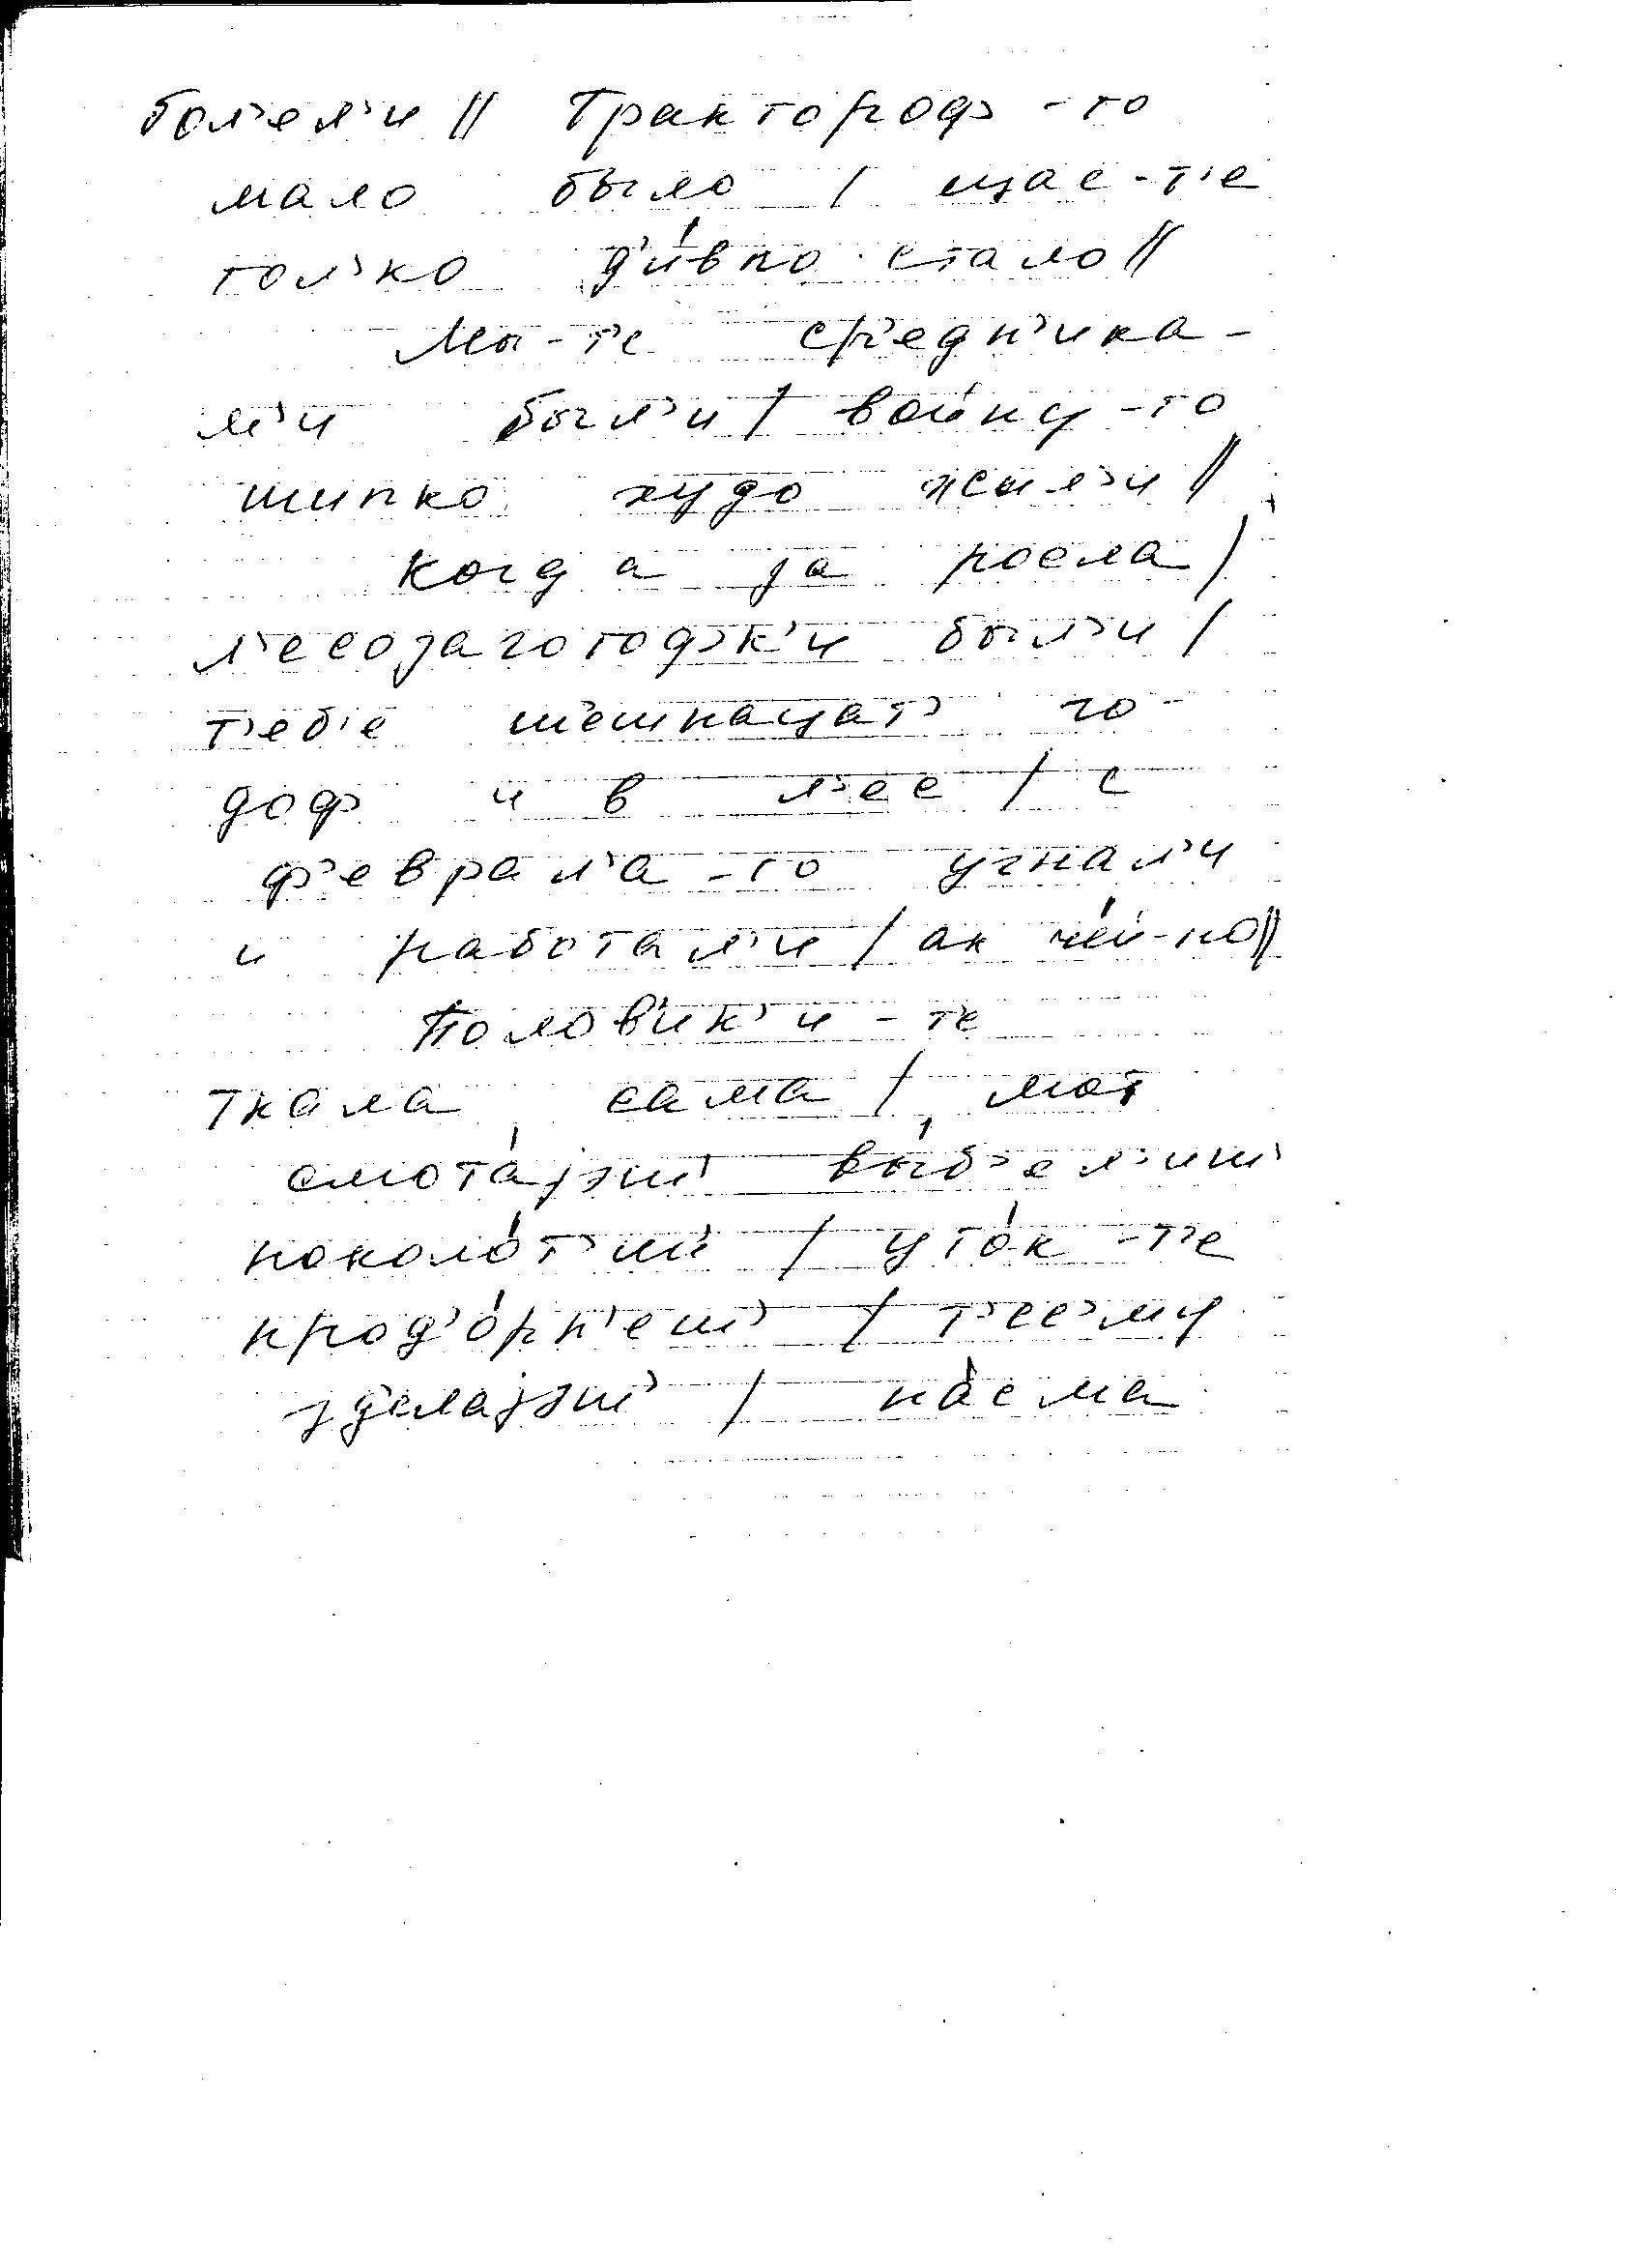 бол'ел'и // Трактороф -то
мало было / щас-т'е
тол'ко д'и́вно стало //
Мы-т'е ср'едн'ика-
м'и был'и / войну -то
шипко худо жыл'и //
Когда jа росла /
л'есозаготофк'и был'и /
т'еб'е шешнацат' го-
доф и в л'ес / с
ф'еврал'а -то угнал'и
и работал'и / ак че́й-но //
Половик'и - т'е
ткала сама / мот
смота́jэш' вы́б'ел'иш'
поколо́т'иш' / уто́к -т'е
прод'о́рн'еш' / т'ес'му
зд'елаjэш' / па́сма